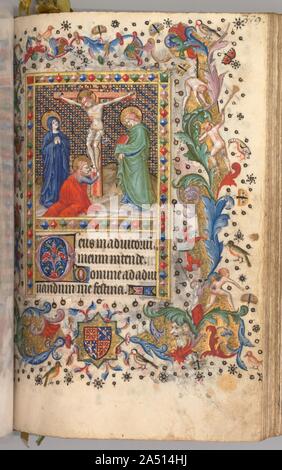 Deus in adiutoriu
meum intende.
Domine ad adiu
uandum me festina.
2A514HJ